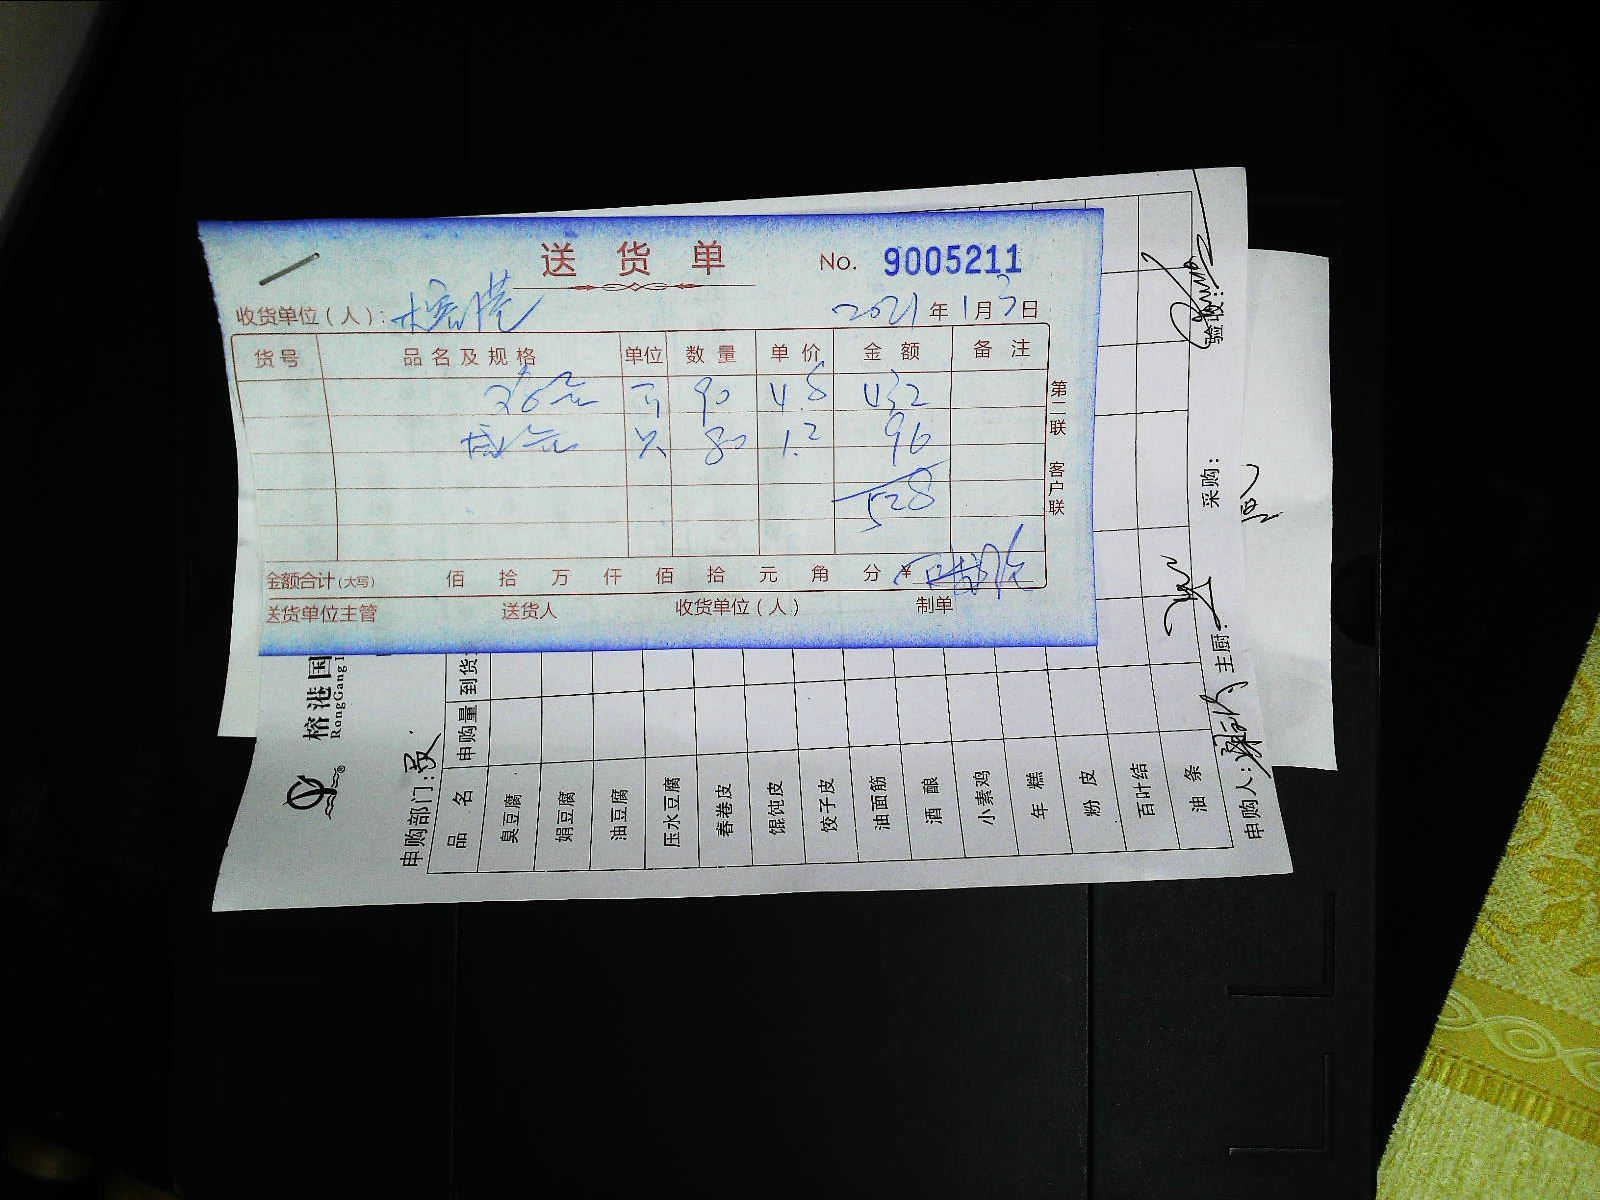 送货单 No. 9005211
收货单位（人）：榕港 2021年1月7日
货号 品名及规格 单位 数量 单价 金额 备注
鸡蛋 斤 90 4.8 432
咸蛋 只 80 1.2 96
528
第二联 客户联
金额合计（大写） 佰 拾 万 仟 佰 拾 元 角 分 ¥
送货单位主管 送货人 收货单位（人） 制单
榕港国
RongGang
申购部门：
品名 申购量 到货
臭豆腐
娟豆腐
油豆腐
压水豆腐
春卷皮
馄饨皮
饺子皮
油面筋
酒酿
小素鸡
年糕
粉皮
百叶结
油条
申购人： 主厨： 采购： 验收：